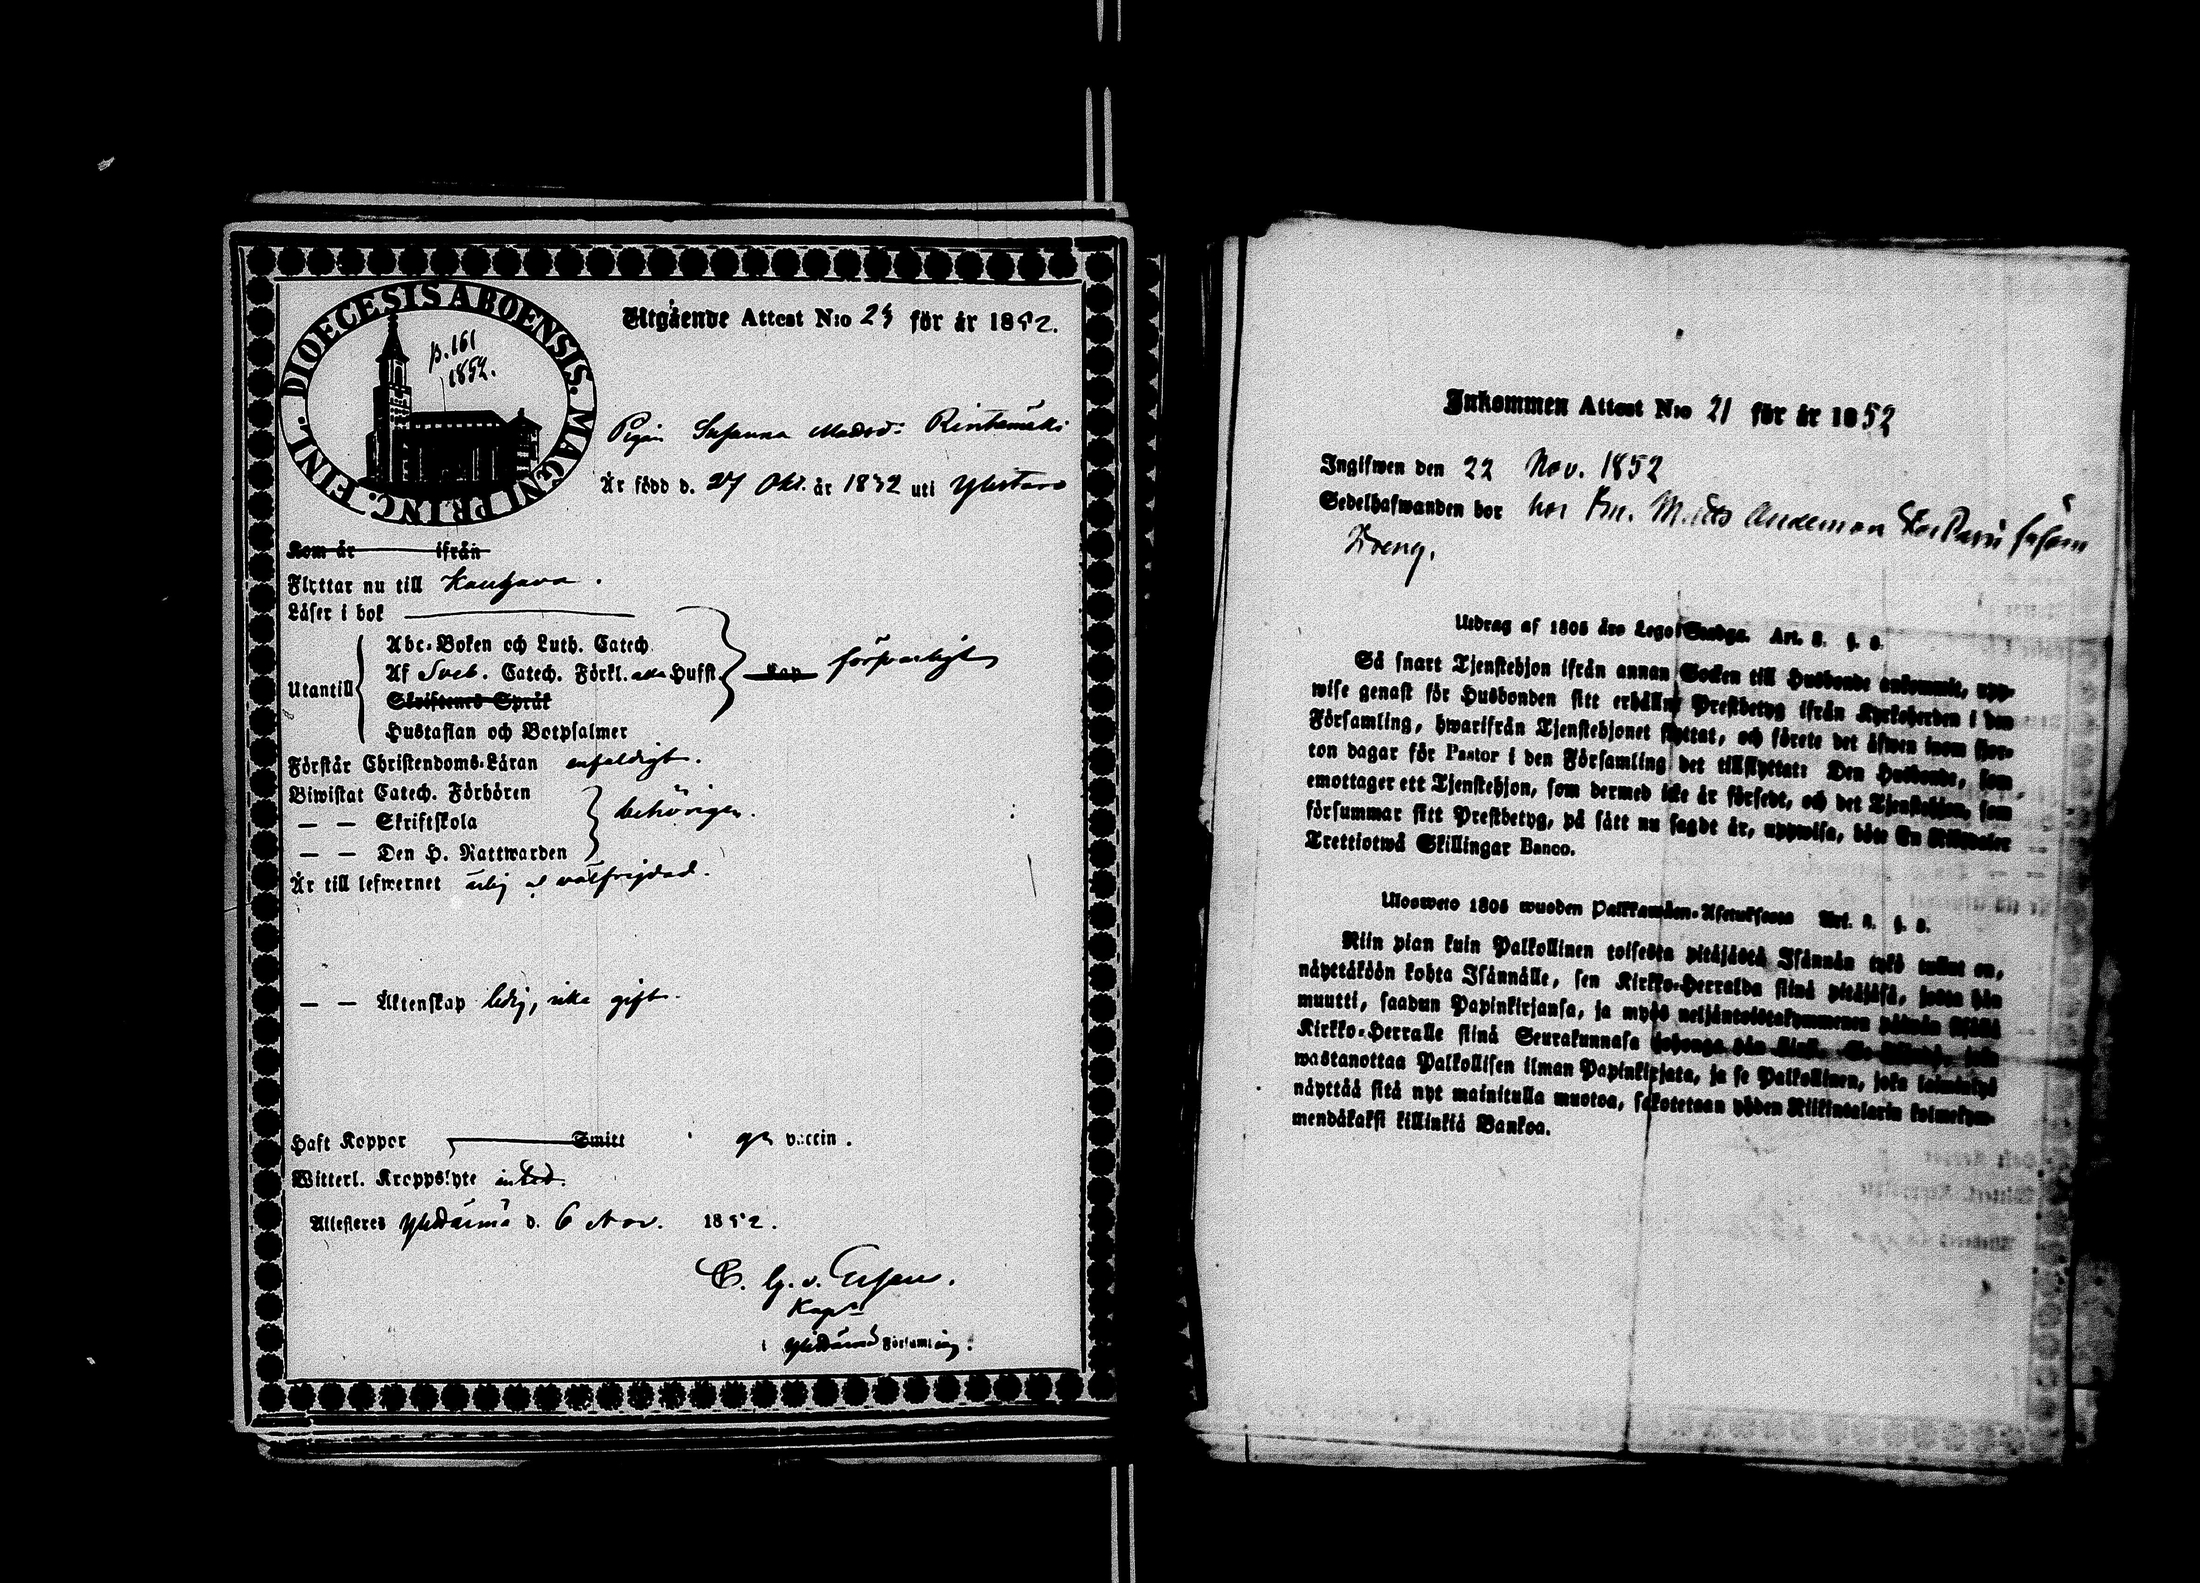 DIOECESIS ABOENSIS. MAGNI PRINC. FINL.
p. 161
1852.
Utgående Attest N:o 24 för år 1852.
Pigan Susanna Matsd: Rintamäki
Är född d. 27 Okt. år 1832 uti Ylistaro
Kom år ifrån
Flyttar nu till Kauhava.
Läser i bok
Utantill
Abc-Boken och Luth. Catech.
Af Sveb. Catech. Förkl. Husfl
Skriftenes Språk
Hustaflan och Botpsalmer
Kap försvarligt
Förstår Christendoms-Läran enfaldigt.
Biwistat Catech. Förhören
— — Skriftskola
— — Den H. Nattwarden
behörigen.
Är till lefwernet ärlig o välfrejdad.
— — Äktenskap ledig, icke gift.
Haft Koppor Smitt vaccin.
Witterl. Kroppslyte intet.
Attesteras Ylihärmä d. 6 Nov. 1852.
C. G. v. Essen.
Kapn
i Ylihärmä Församling:
Inkommen Attest N:o 21 för år 1852
Ingifwen den 22 Nov. 1852
Sedelhafwanden bor hos Bn. Matts Andersson såsom
Dreng.
Utdrag af 1805 års Lego-Stadga. Art. 3. §. 6.
Så snart Tjenstehjon ifrån annan Socken till Husbonde ankommit, upp-
wise genast för Husbonden sitt erhållne Prestbetyg ifrån Kyrkoherden i den
Församling, hwarifrån Tjenstehjonet flyttat, och förete det äfwen inom fjor-
ton dagar för Pastor i den Församling det tillflyttat: Den Husbonde, som
emottager ett Tjenstehjon, som dermed icke är försedt, och det Tjenstehjon, som
försummar sitt Prestbetyg, på sätt nu sagdt är, uppwisa, böte En Riksdaler
Trettiotwå Skillingar Banco.
Ulosweto 1805 wuoden Palkkawäen-Asetuksesta Art. 3. §. 6.
Niin pian kuin Palkollinen toisesta pitäjästä Isännän tykö tullut on,
näyttäköön kohta Isännälle, sen Kirkko-Herralda siinä pitäjäsä, josta hän
muutti, saadun Papinkirjansa, ja myös neljäntoistakymmenen päiwän sisällä
Kirkko-Herralle siinä Seurakunnasa johonga hän
wastanottaa Palkollisen ilman Papinkirjata, ja se Palkollinen, joka laiminlyö
näyttää sitä nyt mainitulla muotoa, sakotetaan yhden Riikintalarin kolmekym-
mendäkaksi killinkiä Bankoa.